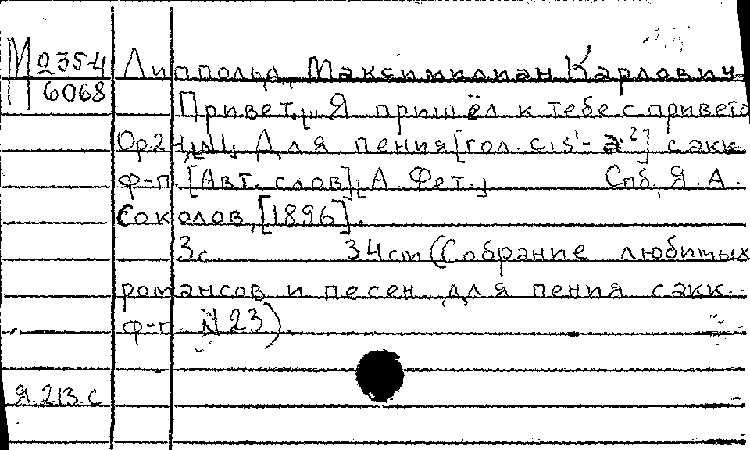 М 235-4 Липпольд, Максимилиан Карлович
6068
Привет. „Я пришёл к тебе с привето
Ор2 Для пения [гол. cis¹-a²] с акк.
ф-п. [Авт. слов] „А. Фет." Спб, Я. А.
Соколов, [1896].
3с 34 cm (Собрание любимых
романсов и песен для пения с акк.
ф-п. N 23).
Я 213 с